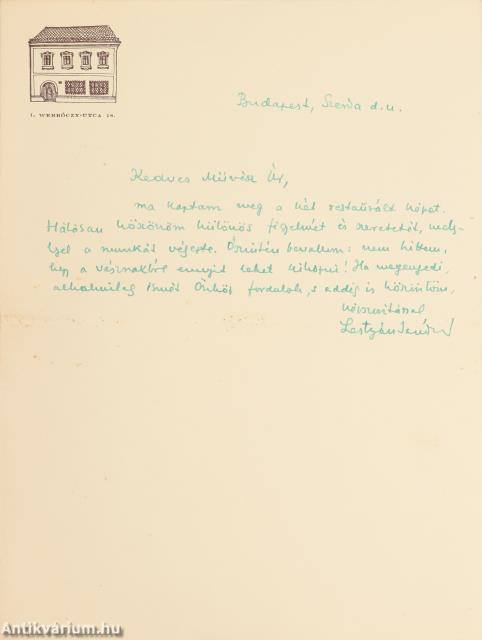 I. WERBŐCZY-UTCA 18.
Budapest, Szerda d. u.
Kedves Művész Úr,
ma kaptam meg a két restaurált képet.
Hálásan köszönöm különös figyelmét és szeretetét, mely-
lyel a munkát végezte. Őszintén bevallom: nem hittem,
hogy a vásznakból ennyit lehet kihozni! Ha megengedi,
alkalmilag ismét Önhöz fordulok, s addig is köszöntöm,
Lestyán Sándor
Antikvárium.hu